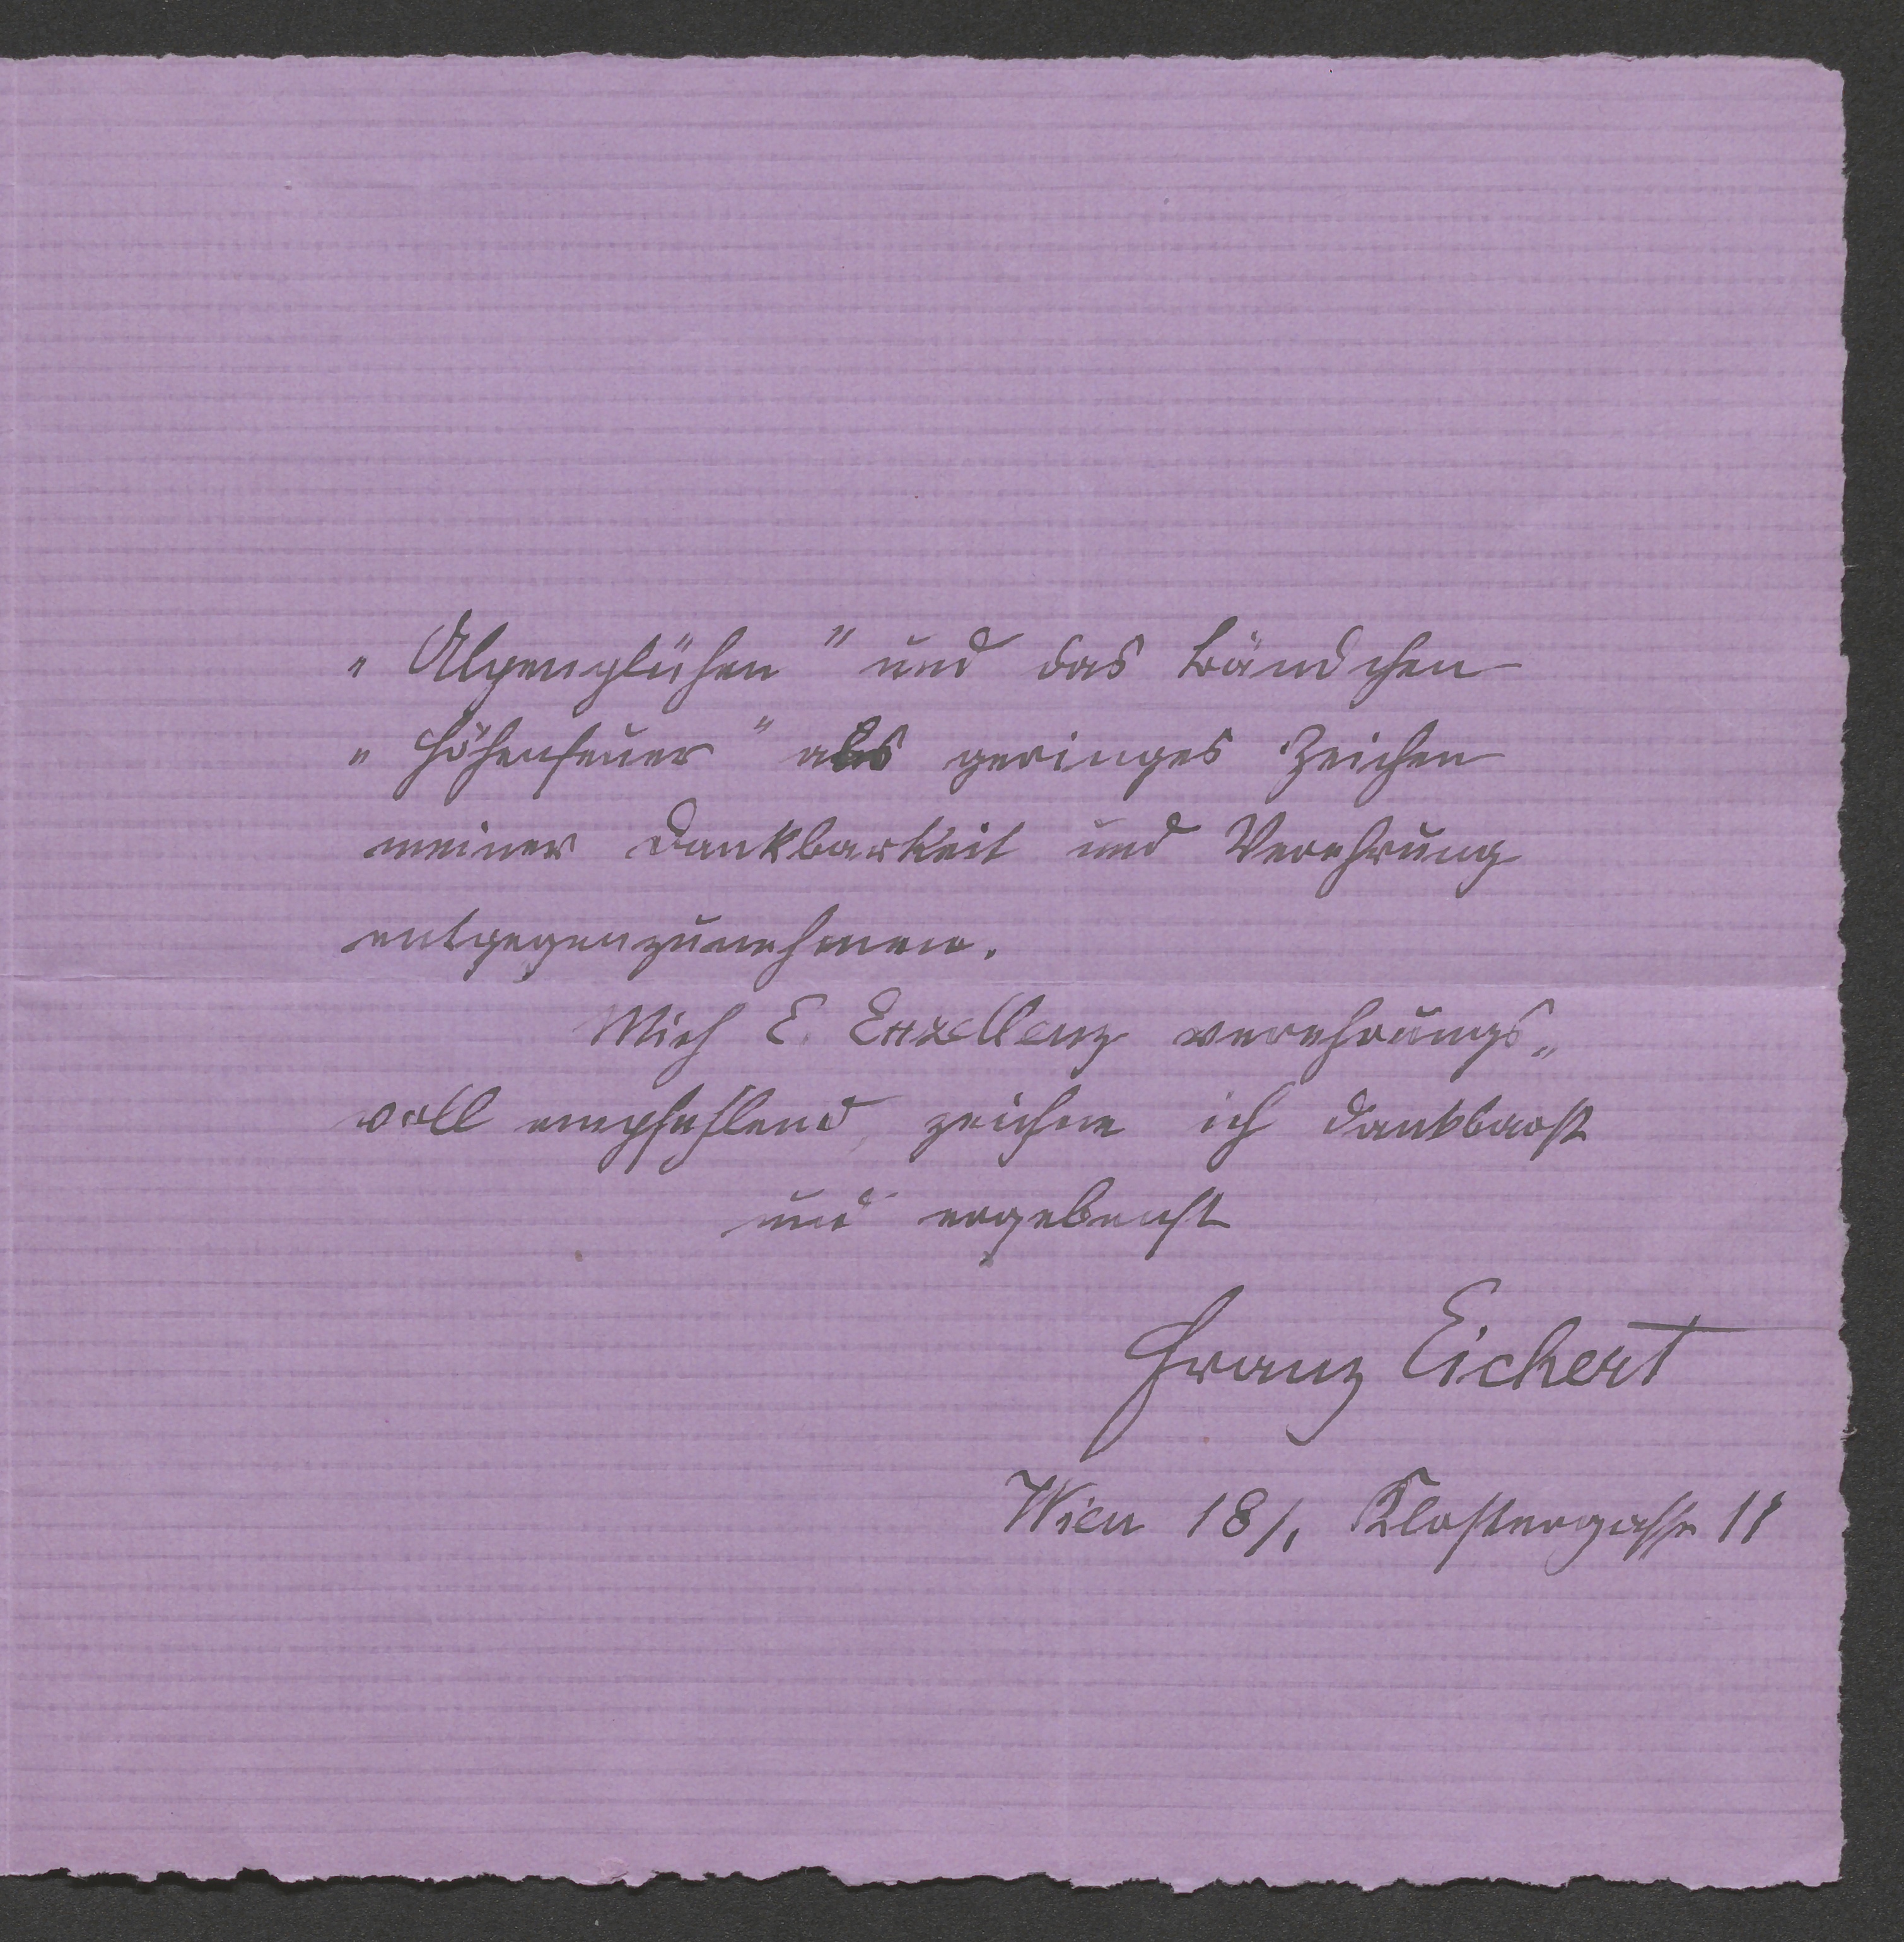 „Alpenglühen" und das Bändchen
„Höhenfeuer" als geringes Zeichen
meiner Dankbarkeit und Verehrung
entgegenzunehmen.
Mich E. Exzellenz verehrungs„
voll empfehlend, zeichne ich dankbarst
und ergebenst
Franz Eichert
Wien 18/1 Klostergasse 11